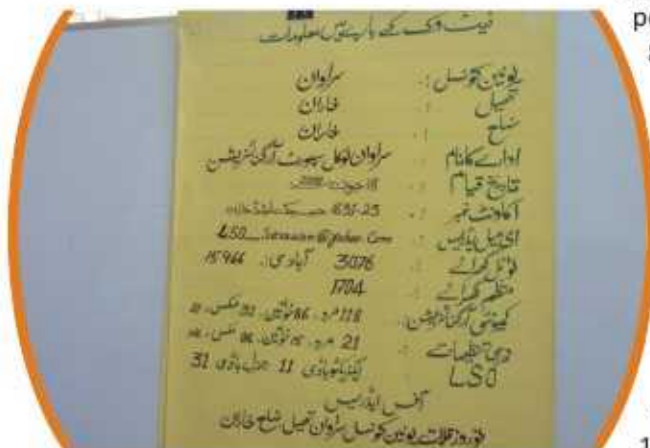 نیٹ ورک کے بارے میں معلومات
یونین کونسل :. سراوان
تحصیل :. خاران
ضلع :. خاران
ادارے کا نام :. سراوان لوکل سپورٹ آرگنائزیشن
تاریخ قیام :. 18
اکاونٹ نمبر :. 651-25
ای میل ایڈریس :.
ٹوٹل گھرانے :. 3076 آبادی :. 15966
منظم گھرانے :. 1704
کمیونٹی آرگنائزیشن :. 118 مرد، 86 خواتین،
دیہی تنظیمات :. 21 مرد، 15 خواتین، 06 مکس،
LSO ایگزیکٹو باڈی 11 جنرل باڈی 31
آفس ایڈریس
یونین کونسل سراوان تحصیل ضلع خاران